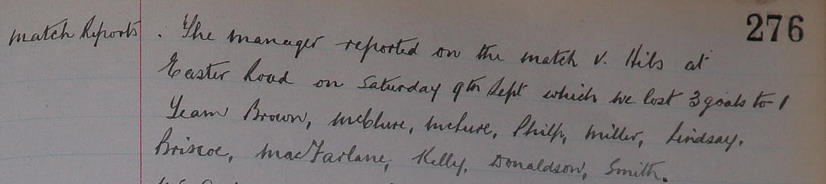 276
Match Reports. The manager reported on the match v. Hibs at
Easter Road on Saturday 9th Sept which we lost 3 goals to 1
Team Brown, McClure, McLure, Philp, Miller, Lindsay,
Briscoe, MacFarlane, Kelly, Donaldson, Smith.